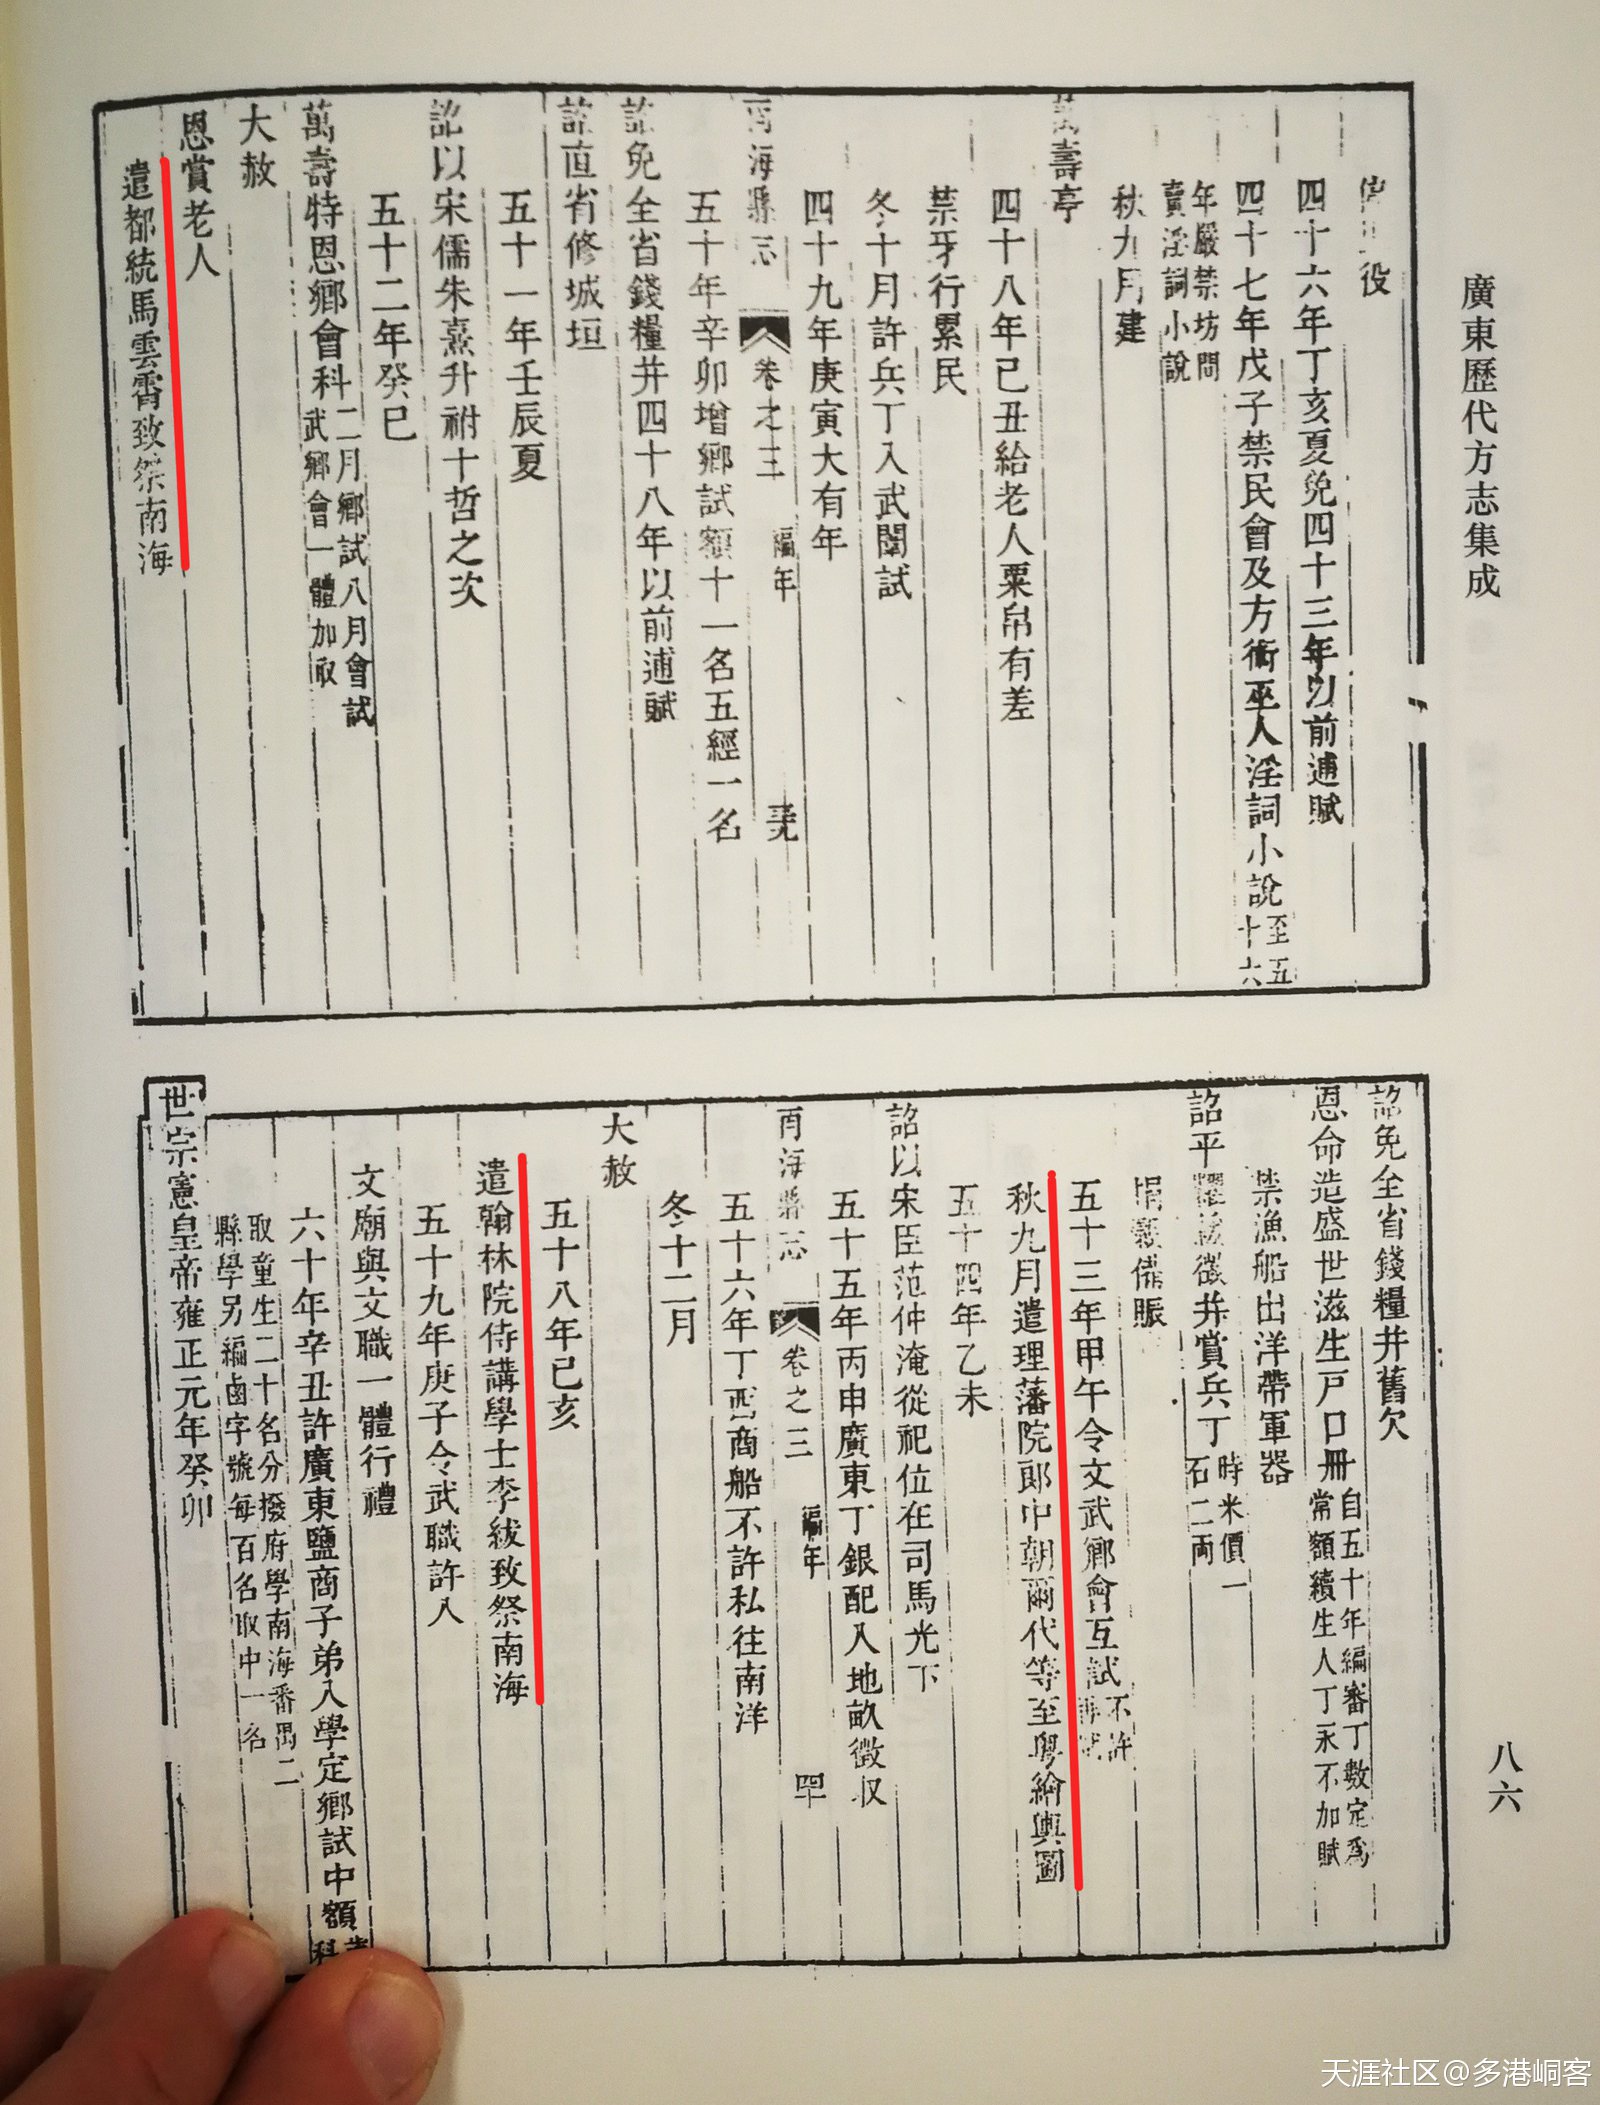 廣東歷代方志集成
役
四十六年丁亥夏免四十三年以前逋賦
四十七年戊子禁民會及方術巫人淫詞小說至五十六
年嚴禁坊間賣淫詞小說
秋九月建
萬壽亭
四十八年己丑給老人粟帛有差
禁牙行累民
冬十月許兵丁入武闈試
四十九年庚寅大有年
南海縣志 卷之三 編年 三九
五十年辛卯增鄉試額十一名五經一名
詔免全省錢糧并四十八年以前逋賦
詔直省修城垣
五十一年壬辰夏
詔以宋儒朱熹升祔十哲之次
五十二年癸巳
萬壽特恩鄉會科二月鄉試八月會試武鄉會一體加取
大赦
恩賞老人
遣都統馬雲霄致祭南海
詔免全省錢糧并舊欠
恩命造盛世滋生戸口冊自五十年編審丁數定爲常額續生人丁永不加賦
禁漁船出洋帶軍器
詔平糶緩徵并賞兵丁時米價一石二兩
捐穀備賑
五十三年甲午令文武鄉會互試不許再試
秋九月遣理藩院郎中朝爾代等至粵繪輿圖
五十四年乙未
詔以宋臣范仲淹從祀位在司馬光下
五十五年丙申廣東丁銀配入地畝徵収
南海縣志 卷之三 編年 四十
五十六年丁酉商船不許私往南洋
冬十二月
大赦
五十八年己亥
遣翰林院侍講學士李紱致祭南海
五十九年庚子令武職許入
文廟與文職一體行禮
六十年辛丑許廣東鹽商子弟入學定鄉試中額歲科
取童生二十名分撥府學南海番禺二縣學另編鹵字號每百名取中一名
世宗憲皇帝雍正元年癸卯
八六
天涯社区@多港峒客